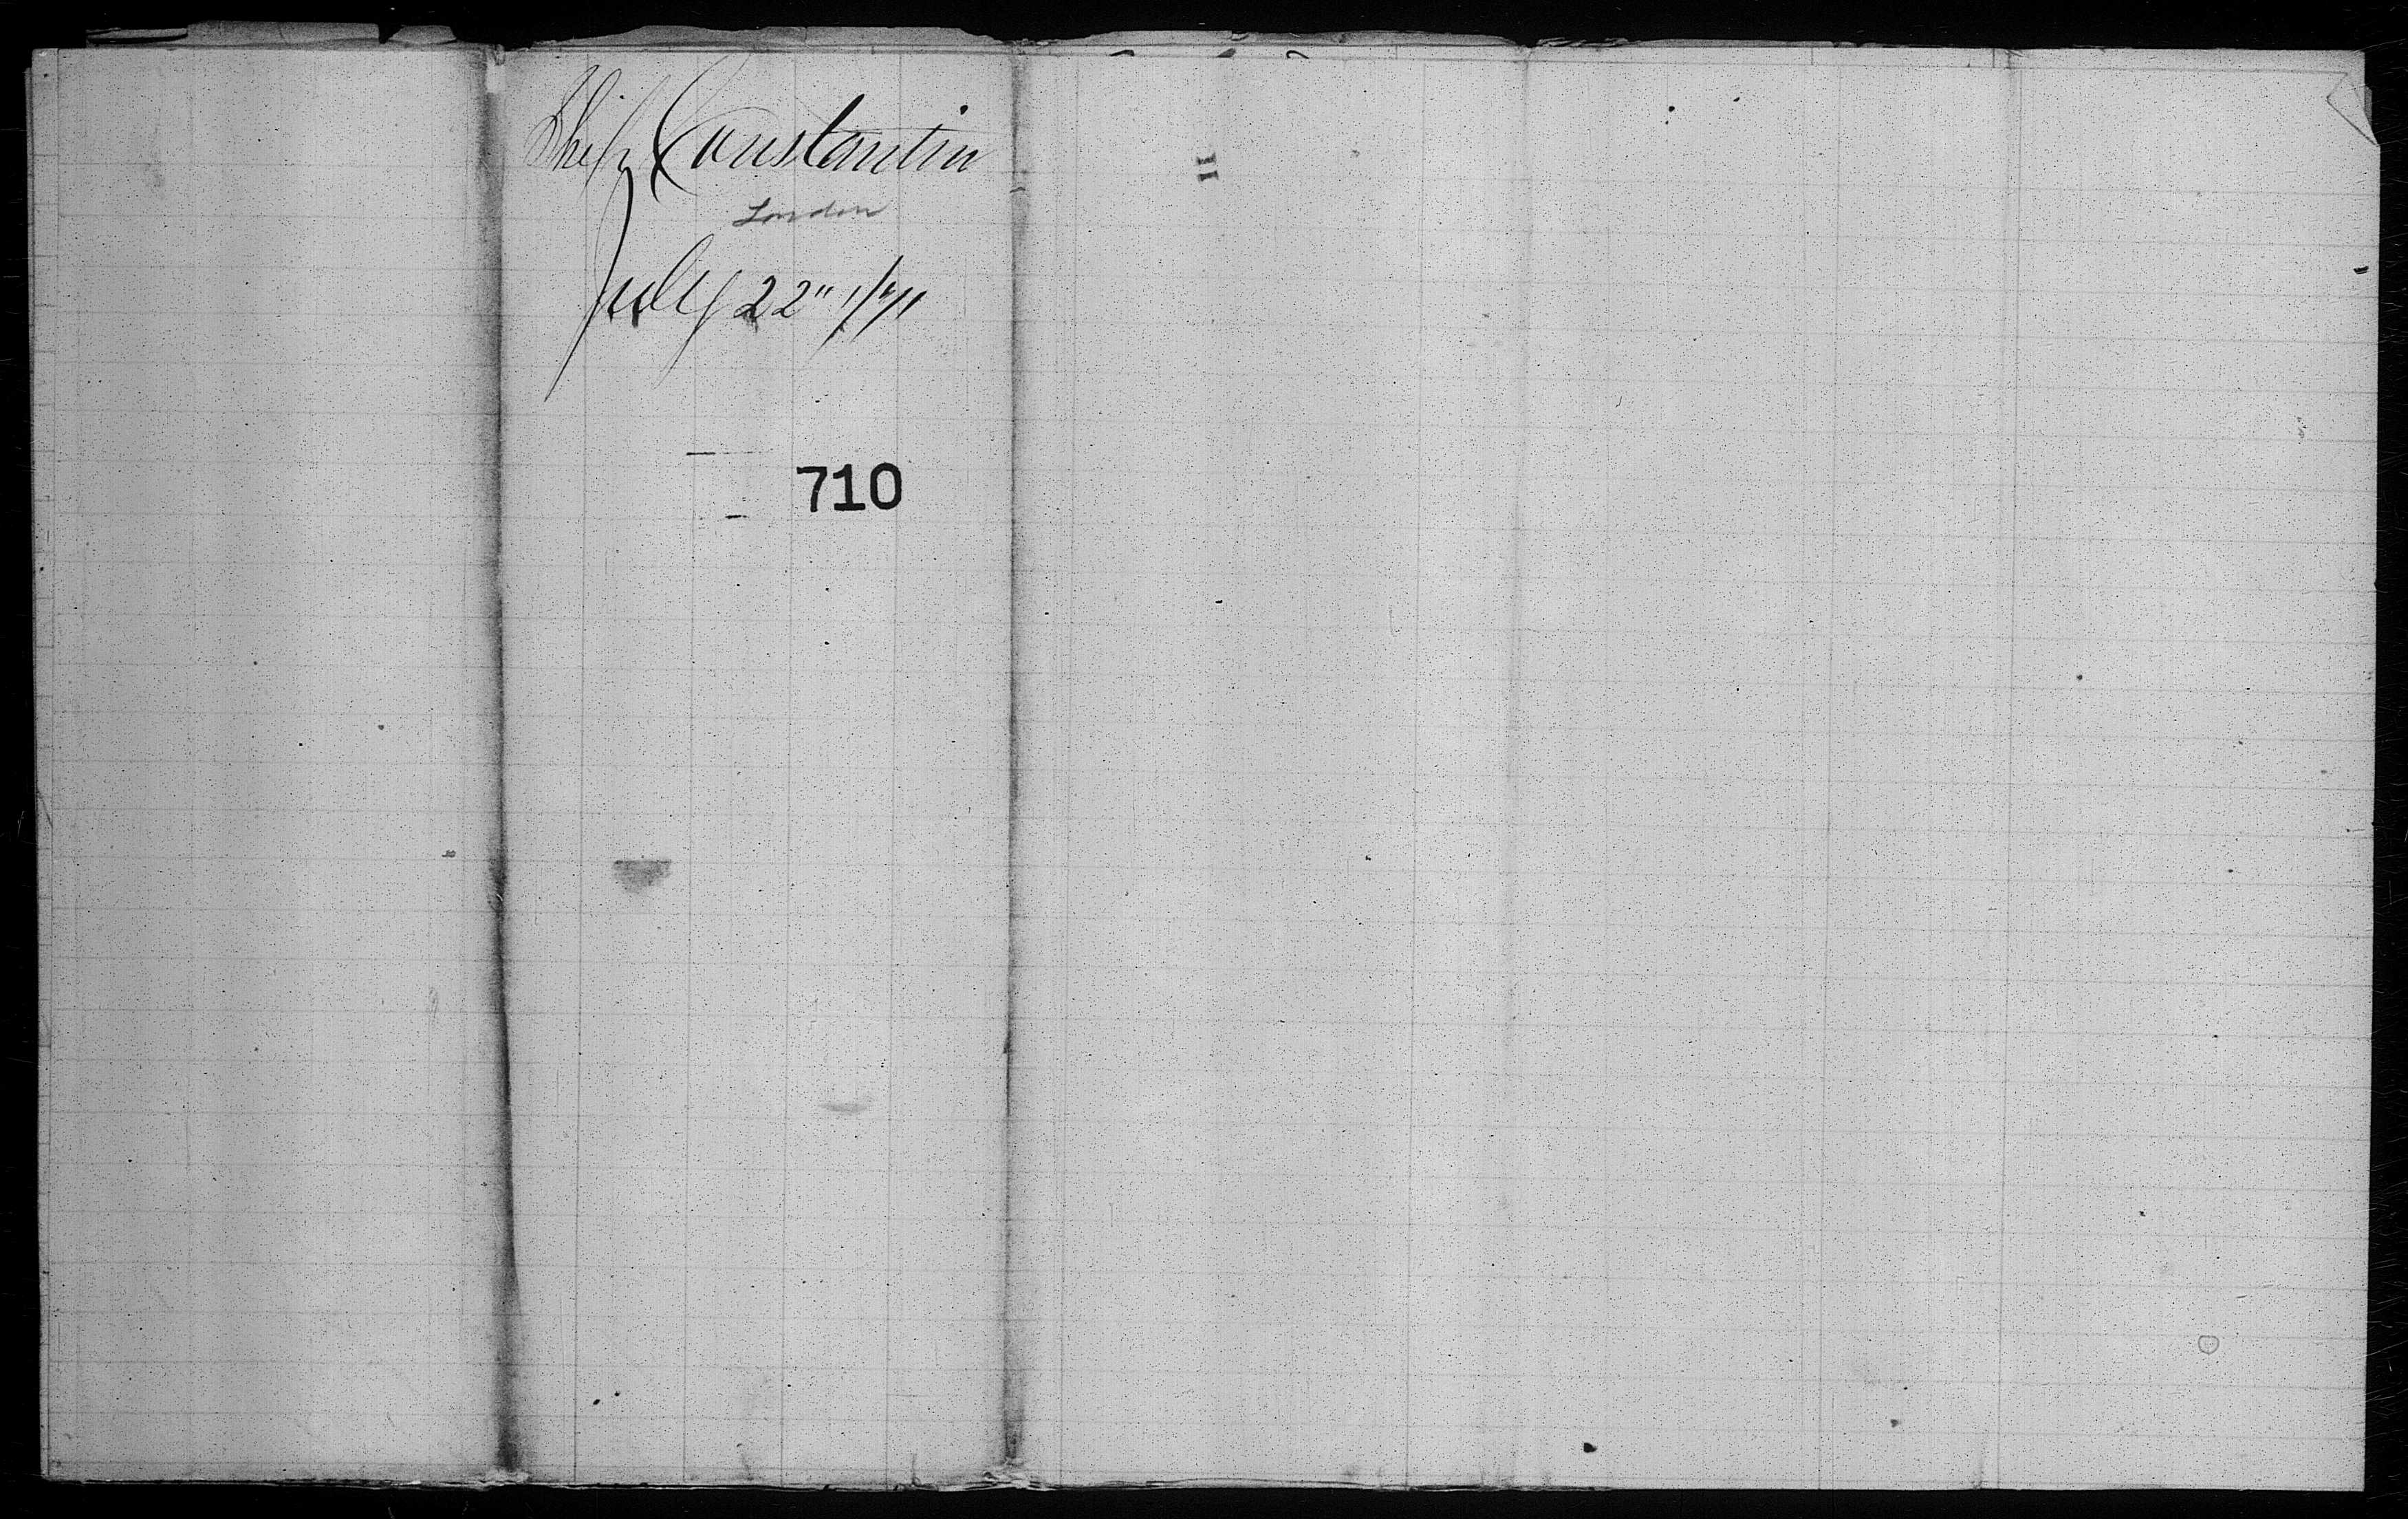 Ship Constantin
London
July 22"
710